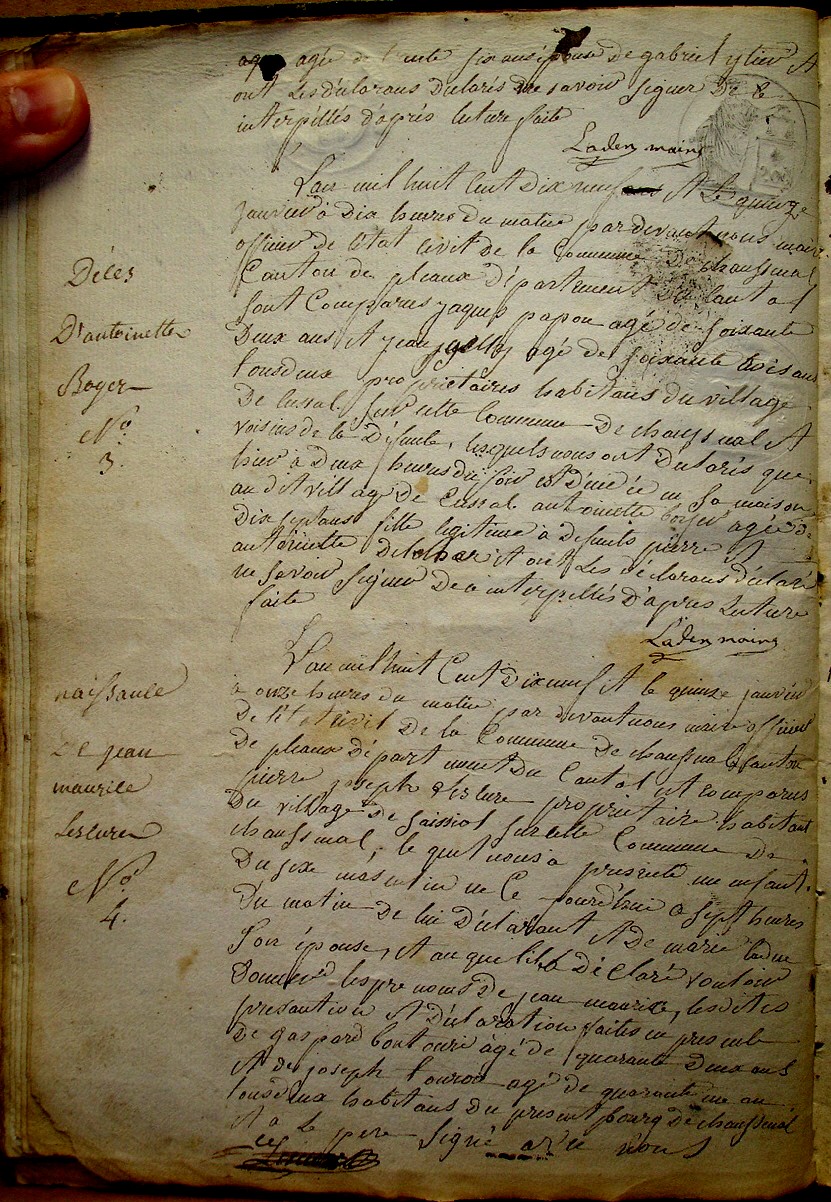 agée de trente six ans épouse de gabriel ytier et
ont les déclarans déclarés ne savoir signer De ce
interpellés d'après lecture faite
Laden maire
L'an mil huit cent dix neuf et le quinze
janvier à dix heures du matin par devant nous maire
officier de l'état civil de la commune de chaussenal
Canton de pleaux département du Cantal
sont comparus jaques papon agé de soixante
Deux ans et jean agé de soixante trois ans
tous deux propriétaires habitans du village
De Cussal sur cette commune de chaussenal et
voisins de la défunte, lesquels nous ont déclarés que
hier à deux heures du soir est décédée en sa maison
au dit village de Cussal antoinette boyer agée de
dix sept ans fille légitime à defunts pierre et
antoinette et ont les déclarans déclaré
ne savoir signer de ce interpellés d'après lecture
faite
Laden maire
Déces
D'antoinette
Boyer
N°
3.
L'an mil huit Cent dix neuf et le quinze janvier
à onze heures du matin par devant nous maire officier
De l'état civil de la Commune de chaussenal Canton
De pleaux département du Cantal est comparus
pierre joseph Lescure propriétaire habitant
Du village de saissiol sur cette Commune De
chaussenal, le quel nous à presenté un enfant
Du sexe masculin né Ce jourd'hui à sept heures
Du matin de lui déclarant et De marie
Son épouse, et au quel il à Déclaré vouloir
Donner les prenoms de jean maurice, les dites
presantation et Déclaration faites en presence
De gaspard agé de quarante Deux ans
et de joseph agé de quarante un an
tous deux habitans Du present bourg De chaussenal
et a le pere signé avec nous
naissance
De jean
maurice
Lescure
N°
4.